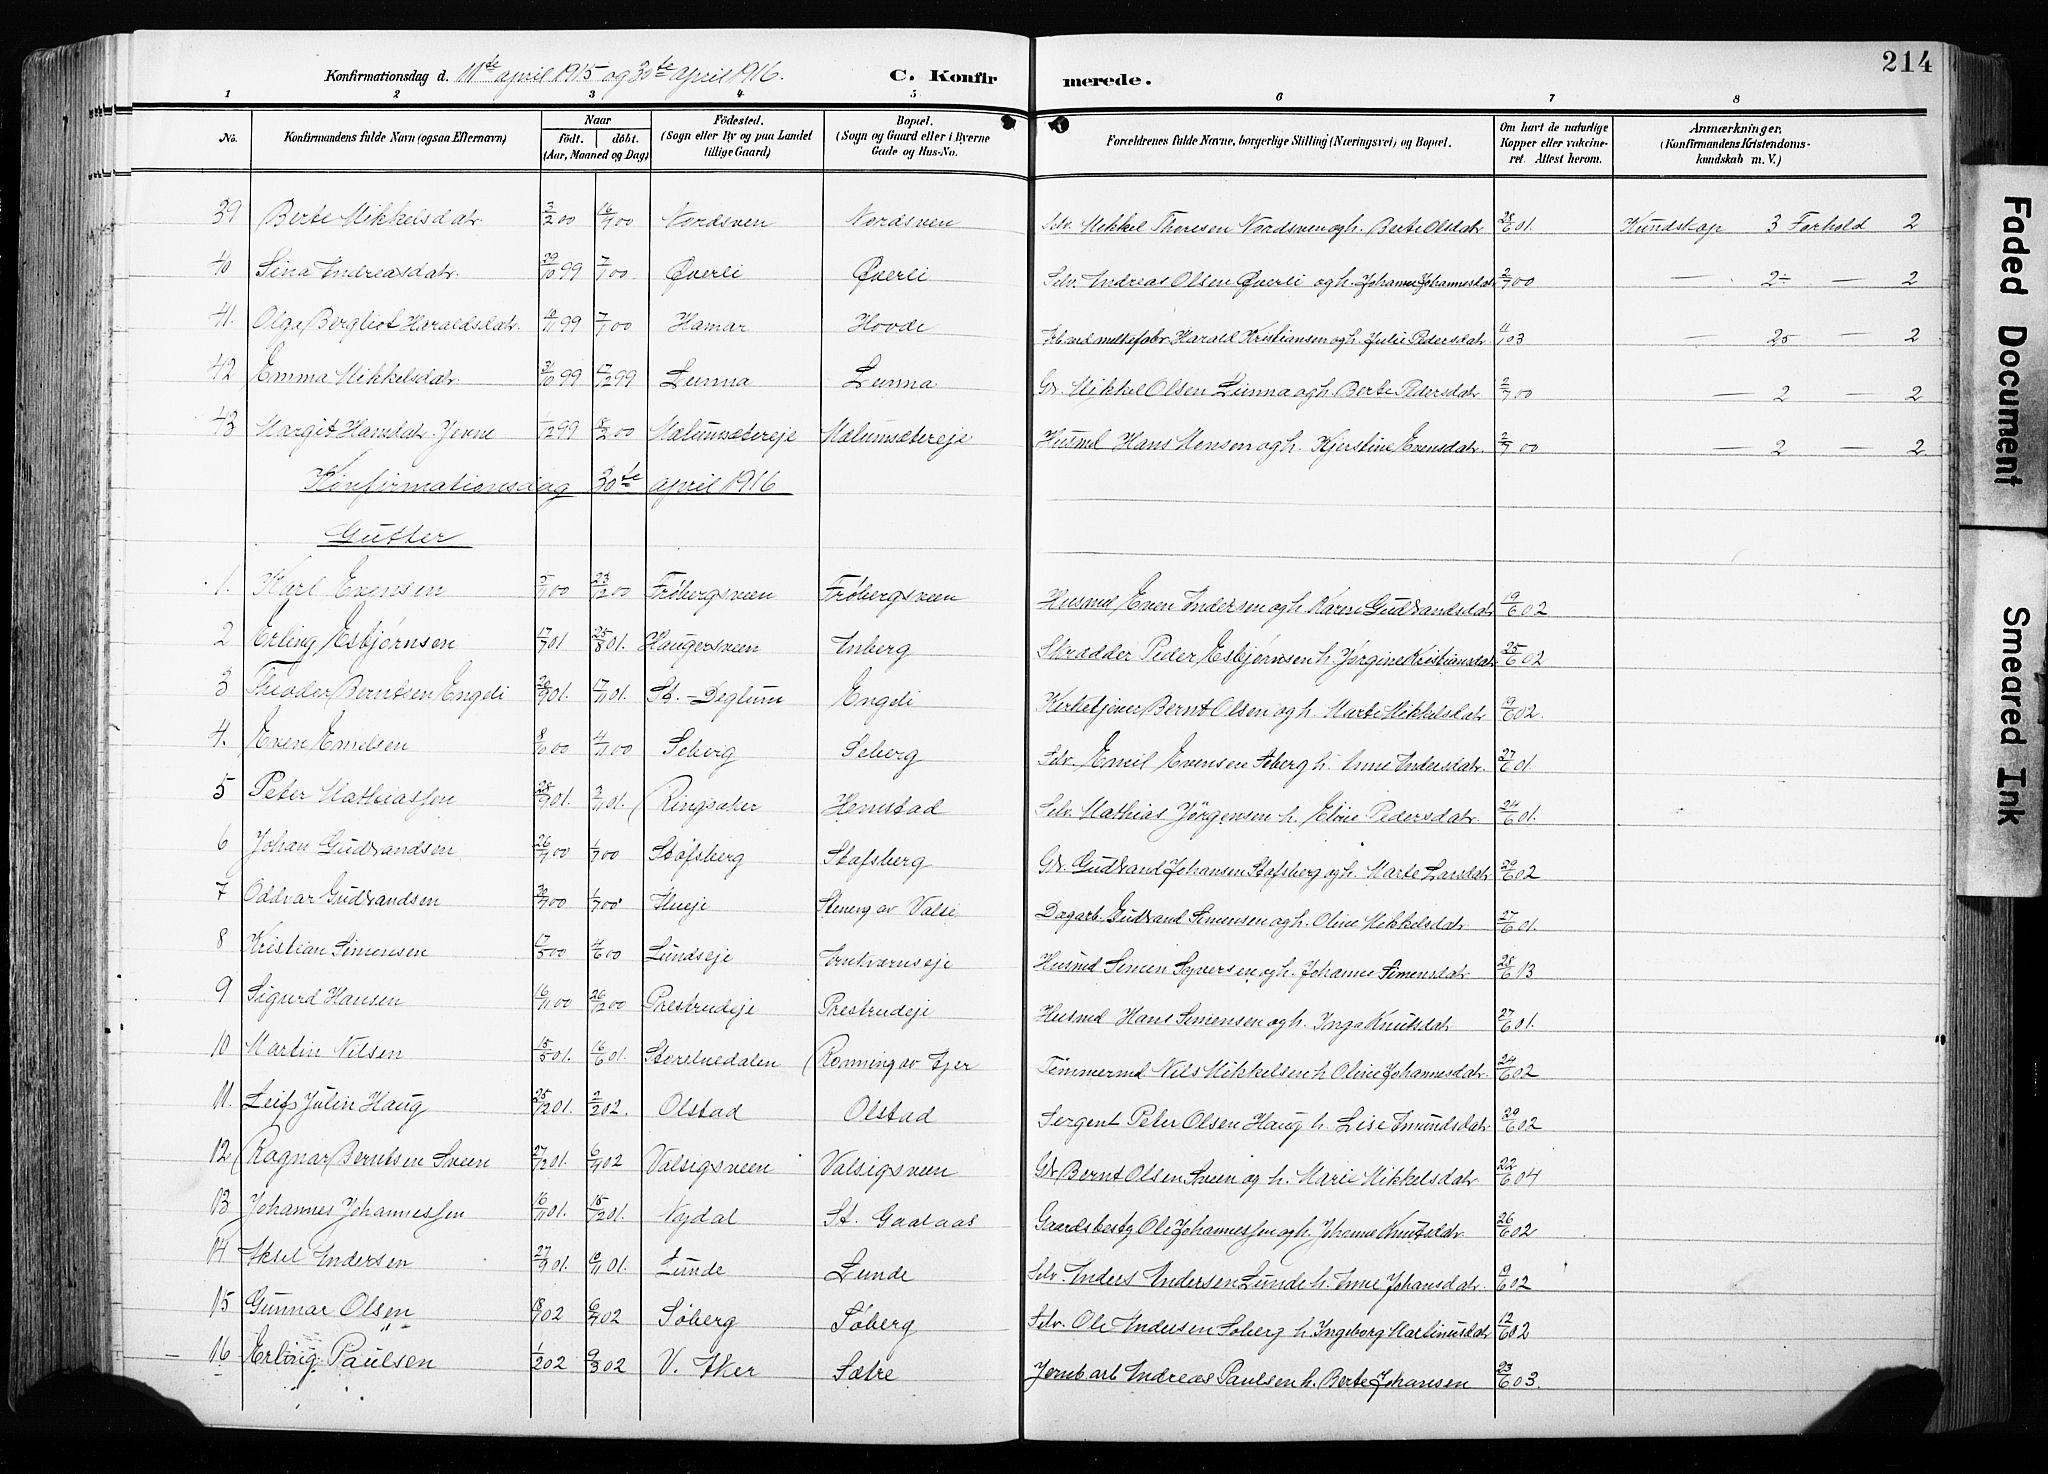 214
Konfirmationsdag d. 11te april 1915 og 30te april 1916. C. Konfirmerede.
1 2 3 4 5 6 7 8
No. Konfirmandens fulde Navn (ogsaa Efternavn) Naar født. døbt. (Aar, Maaned og Dag) Fødested. (Sogn eller By og paa Landet tillige Gaard) Bopæl. (Sogn og Gaard eller i Byerne Gade og Hus-No. Forældrenes fulde Navne, borgerlige Stilling (Næringsvei) og Bopæl. Om havt de naturlige Kopper eller vakcineret. Attest herom. Anmærkninger, (Konfirmandens Kristendomskundskab m. V.)
39 Berte Mikkelsdatr. 3/2 00 16/4 00 Nordsven Nordsven Selv. Mikkel Thoresen Nordsven og h. Berte Olsdatr. 28/6 01 Kundskap 3 Forhold 2
40 Sina Andreasdatr. 29/10 99 7/1 00 Øverli Øverli Selv. Andreas Olsen Øverli og h. Johanne Johannesdatr 2/7 00 — 2÷ — 2
41. Olga Bergliot Haraldsdatr. 99 7/1 00 Hamar Hovde Harald Kristiansen og h. Julie Pedersdatr. 11/1 03 — — 2
42 Emma Mikkelsdatr. 31/10 99 17/12 99 Lunna Lunna Gbr. Mikkel Olsen Lunna og h. Berte Pedersdatr 2/7 00 — 2 — 2
43 Margit Hansdatr. 1/12 99 00 Mælumsætereje Mælumsætereje Husmd Hans Monsen og h. Kjerstine Evensdatr. 2/7 00 — 2 — 2
Konfirmationsdag 30te april 1916
Gutter
1. Karl Evensen 00 23/12 00 Frøbergsveen Frøbergsveen Husmd Even Andersen og h. Karen Gudbrandsdatr 19/6 02
2 Erling Esbjørnsen 17/7 01 25/8 01. Haugersveen Anberg Skrædder Peder Esbjørnsen h. Jørgine Kristiansdatr 25/6 02
3 Theodor Berntsen Engeli 01. 17/11 01. St. Deglum Engeli Kirketjener Bernt Olsen og h. Marte Mikkelsdatr 19/6 02.
4. Even Emilsen 8/10 00 4/11 00 Søberg Søberg Selv. Emil Evensen Søberg h. Anne Andersdatr. 27/6 01.
5 Peter Mathiassen 28/9 01. 3/11 01. Ringsaker Hemstad Selv. Mathias Jørgensen h. Eline Pedersdatr. 24/6 01.
6 Johan Gudbrandsen 26/4 00 1/7 00 Stafsberg Stafsberg Gbr. Gudbrand Johansen Stafsberg og h. Marte Larsdatr 29/6 02
7 Oddvar Gudbrandsen 00 1/7 00 Hueje Steneng av Valsi Dagarb. Gudbrand Simensen og h. Oline Mikkelsdatr 27/6 01.
8 Kristian Simensen 17/5 00 4/6 00 Lundseje Husmd Simen Syversen og h. Johanne Simensdatr 28/6 13
9 Sigurd Hansen 16/11 00 26/12 00 Prestrudeje Prestrudeje Husmd Hans Simensen og h. Inga Knutsdatr 27/6 01.
10 Martin Nilsen 15/5 01. 16/6 01. Storelvedalen Rønning av Tjer Tømmermd. Nils Mikkelsen h Oline Johannesdatr. 24/6 02
11. Leif Julin Haug 25/12 01. 2/2 02. Olstad Olstad Sergent Peter Olsen Haug h. Lise Amundsdatr 29/6 02
12 Ragnar Berntsen Sveen 27/12 01. 6/4 02 Valsigsveen Valsigsveen Gbr Bernt Olsen Sveen og h. Marie Mikkelsdatr. 22/6 04
13 Johannes Johannessen 16/11 01. 15/12 01. Nydal St. Gaalaas Gaardsbesty Ole Johannessen og h. Johanne Knutsdatr. 26/6 02
14 Aksel Andersen 27/9 01. 10/11 01. Lunde Lunde Selv. Anders Andersen Lunde h. Anne Johansdatr. 19/6 02
15 Gunnar Olsen 02 6/4 02 Søberg Søberg Selv. Ole Andersen Søberg h Ingeborg Martinusdatr 12/6 02
16 Erling Paulsen 1/2 02 9/3 02 V. Aker Sætre Jernb arb Andreas Paulsen h. Berte Johansen 23/6 03.
Faded Document
Smeared Ink